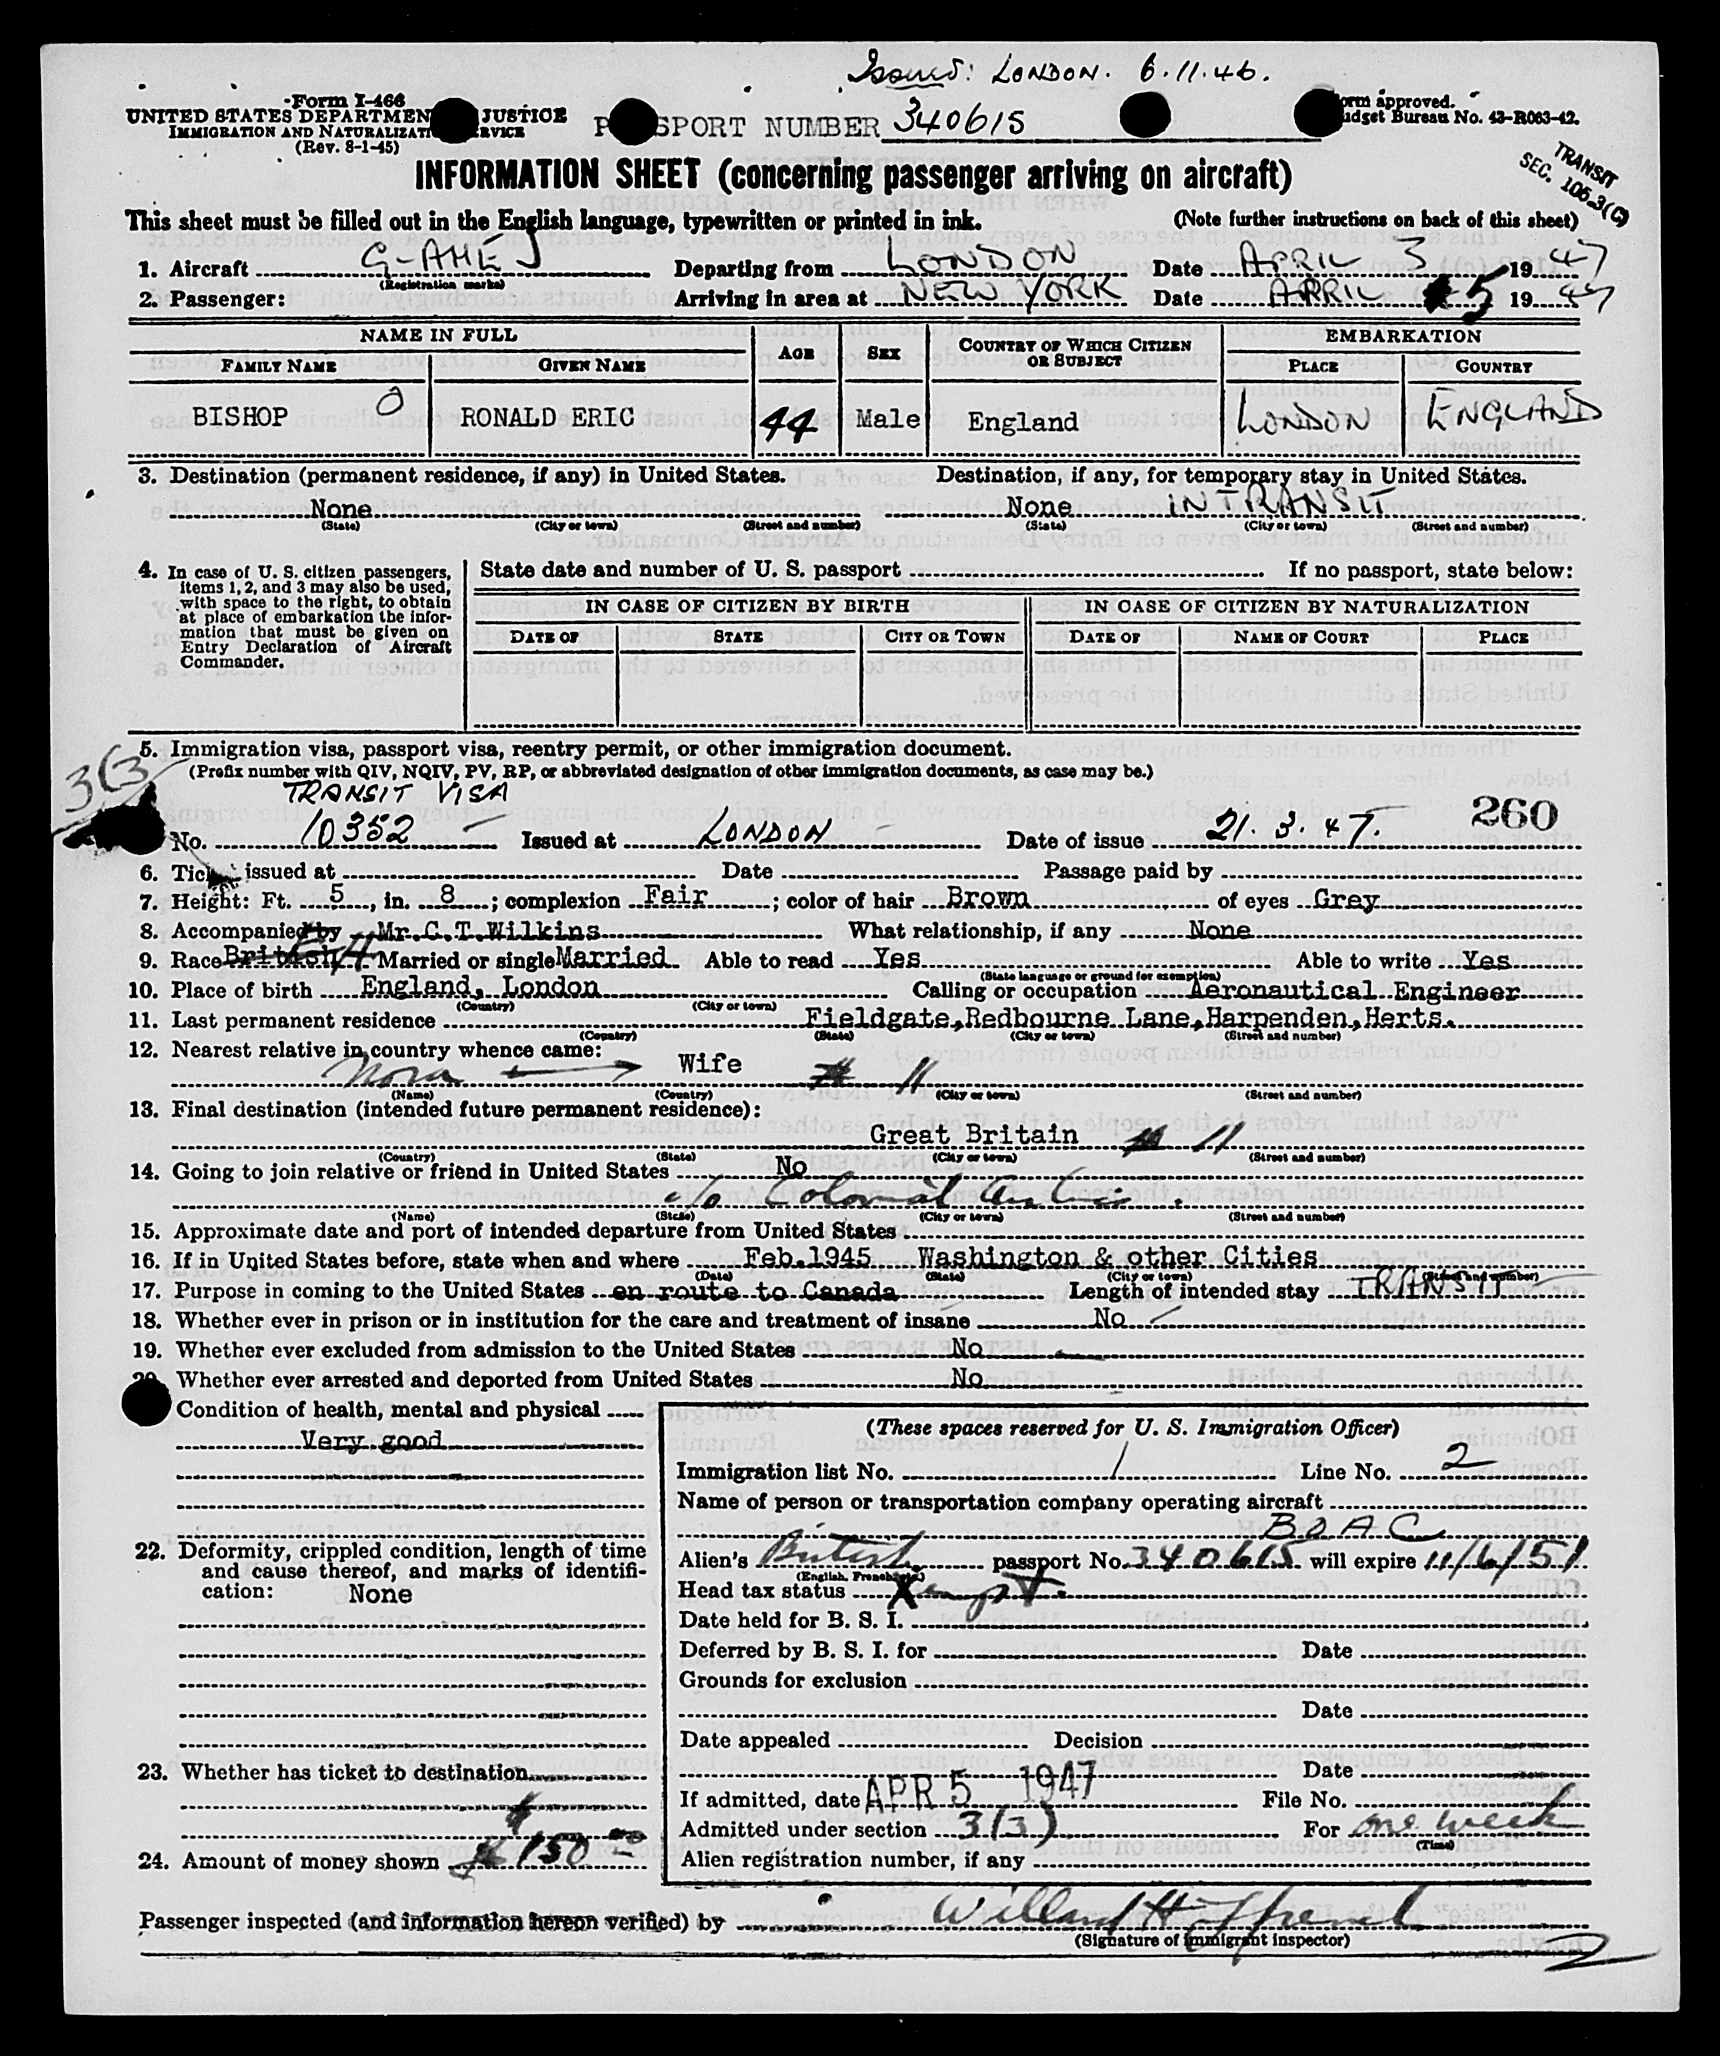 Issued: LONDON. 6.11.46.
Form I-466
UNITED STATES DEPARTMEN JUSTICE
IMMIGRATION AND NATURALIZATI RVICE
(Rev. 8-1-45)
P SPORT NUMBER 340615
orm approved.
udget Bureau No. 43-R063-42.
TRANSIT
SEC. 106.3(C)
INFORMATION SHEET (concerning passenger arriving on aircraft)
This sheet must be filled out in the English language, typewritten or printed in ink. (Note further instructions on back of this sheet)
1. Aircraft G-AHEJ Departing from LONDON Date APRIL 3 1947
(Registration marks)
2. Passenger: Arriving in area at NEW YORK Date APRIL 5 1947
NAME IN FULL AGE SEX COUNTRY OF WHICH CITIZEN OR SUBJECT EMBARKATION
FAMILY NAME GIVEN NAME PLACE COUNTRY
BISHOP RONALD ERIC 44 Male England LONDON ENGLAND
3. Destination (permanent residence, if any) in United States. Destination, if any, for temporary stay in United States.
None None IN TRANSIT
(State) (City or town) (Street and number) (State) (City or town) (Street and number)
4. In case of U. S. citizen passengers, items 1, 2, and 3 may also be used, with space to the right, to obtain at place of embarkation the information that must be given on Entry Declaration of Aircraft Commander.
State date and number of U. S. passport If no passport, state below:
IN CASE OF CITIZEN BY BIRTH IN CASE OF CITIZEN BY NATURALIZATION
DATE OF STATE CITY OR TOWN DATE OF NAME OF COURT PLACE
5. Immigration visa, passport visa, reentry permit, or other immigration document.
(Prefix number with QIV, NQIV, PV, RP, or abbreviated designation of other immigration documents, as case may be.)
3(3
TRANSIT VISA
260
No. 10352 Issued at LONDON Date of issue 21. 3. 47.
6. Tick issued at Date Passage paid by
7. Height: Ft. 5, in. 8; complexion Fair; color of hair Brown of eyes Grey
8. Accompanied by Mr.C.T.Wilkins What relationship, if any None
9. Race British Married or single Married Able to read Yes Able to write Yes
(State language or ground for exemption)
10. Place of birth England, London Calling or occupation Aeronautical Engineer
(Country) (City or town)
11. Last permanent residence Fieldgate,Redbourne Lane,Harpenden,Herts.
(Country) (State) (City or town) (Street and number)
12. Nearest relative in country whence came:
Nora Wife 11
(Name) (Country) (City or town) (Street and number)
13. Final destination (intended future permanent residence):
Great Britain 11
(Country) (State) (City or town) (Street and number)
14. Going to join relative or friend in United States No
c/o Colonial
(Name) (State) (City or town) (Street and number)
15. Approximate date and port of intended departure from United States
16. If in United States before, state when and where Feb.1945 Washington & other Cities
(Date) (State) (City or town) (Street and number)
17. Purpose in coming to the United States en route to Canada Length of intended stay TRANSIT
18. Whether ever in prison or in institution for the care and treatment of insane No
19. Whether ever excluded from admission to the United States No
20. Whether ever arrested and deported from United States No
Condition of health, mental and physical
Very good
(These spaces reserved for U. S. Immigration Officer)
Immigration list No. 1 Line No. 2
Name of person or transportation company operating aircraft
BOAC
22. Deformity, crippled condition, length of time and cause thereof, and marks of identification: None
Alien's British passport No. 340615 will expire 11/6/51
(English, French, etc.)
Head tax status Xempt.
Date held for B. S. I.
Deferred by B. S. I. for Date
Grounds for exclusion
Date
Date appealed Decision
23. Whether has ticket to destination
Date
If admitted, date APR 5 1947 File No.
Admitted under section 3(3) For one week
(Time)
24. Amount of money shown $150
Alien registration number, if any
Passenger inspected (and information hereon verified) by Willard H.
(Signature of immigrant inspector)
2